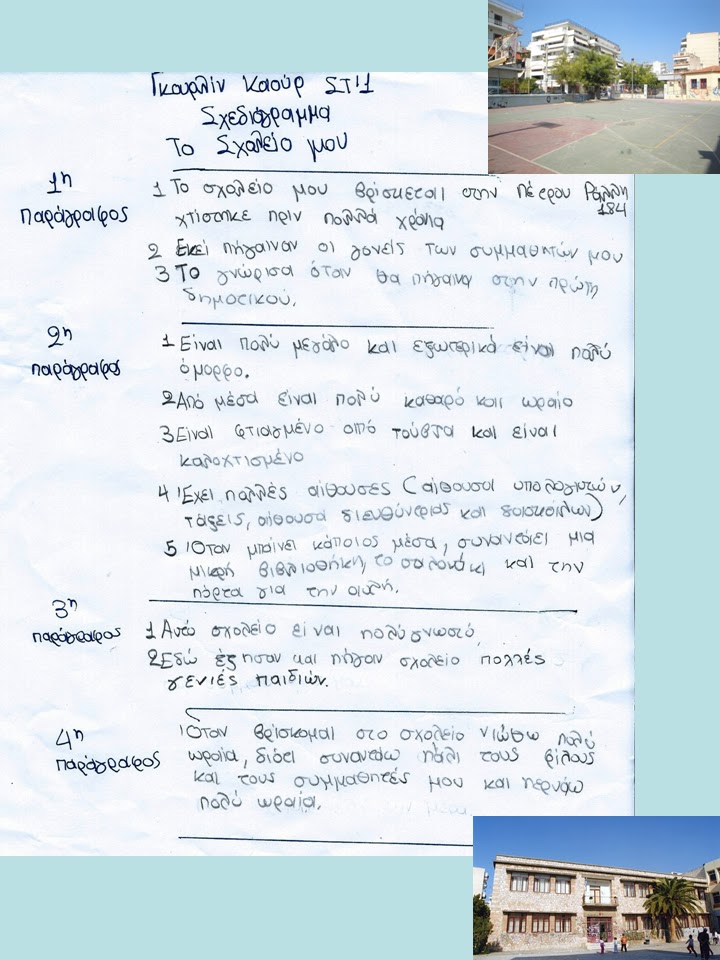 Γκουρλίν Καούρ ΣΤ'1
Σχεδιόγραμμα
Το Σχολείο μου
1η παράγραφος
1 Το σχολείο μου βρίσκεται στην Πέτρου Ράλλη 184
χτίστηκε πριν πολλά χρόνια
2 Εκεί πήγαιναν οι γονείς των συμμαθητών μου
3 Το γνώρισα όταν θα πήγαινα στην πρώτη
δημοτικού.
2η παράγραφος
1 Είναι πολύ μεγάλο και εξωτερικά είναι πολύ
όμορφο.
2 Από μέσα είναι πολύ καθαρό και ωραίο
3 Είναι φτιαγμένο από τούβλα και είναι
καλοχτισμένο
4 Έχει πολλές αίθουσες (αίθουσα υπολογιστών,
τάξεις, αίθουσα διευθύντριας και δασκάλων)
5 Όταν μπαίνει κάποιος μέσα, συναντάει μια
μικρή βιβλιοθήκη, το σαλονάκι και την
πόρτα για την αυλή.
3η παράγραφος
1 Αυτό σχολείο είναι πολύ γνωστό,
2 Εδώ έζησαν και πήγαν σχολείο πολλές
γενιές παιδιών.
4η παράγραφος
Όταν βρίσκομαι στο σχολείο νιώθω πολύ
ωραία, διότι συναντάω πάλι τους φίλους
και τους συμμαθητές μου και περνάω
πολύ ωραία.